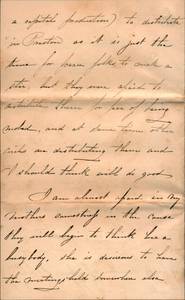 a capital production) to distribute
in Preston as it is just the
time for some folks to make a
stir but they were afraid to
distribute them for fear of being
and at same time other
are distributing them and
I should think will do good
I am almost afraid in my
mothers in the cause
they will begin to think her a
busybody. she is desirous to have
the meetings held somewhere else